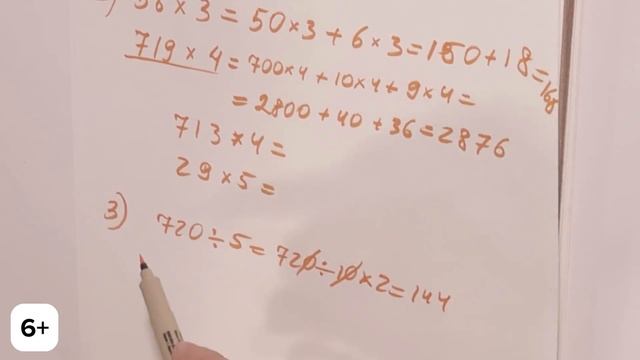 56 × 3 = 50×3 + 6×3 = 150 + 18 = 168
719 × 4 = 700×4 + 10×4 + 9×4 =
= 2800 + 40 + 36 = 2876
713 × 4 =
29 × 5 =
3) 720 ÷ 5 = 720 ÷ 10 × 2 = 144
6+